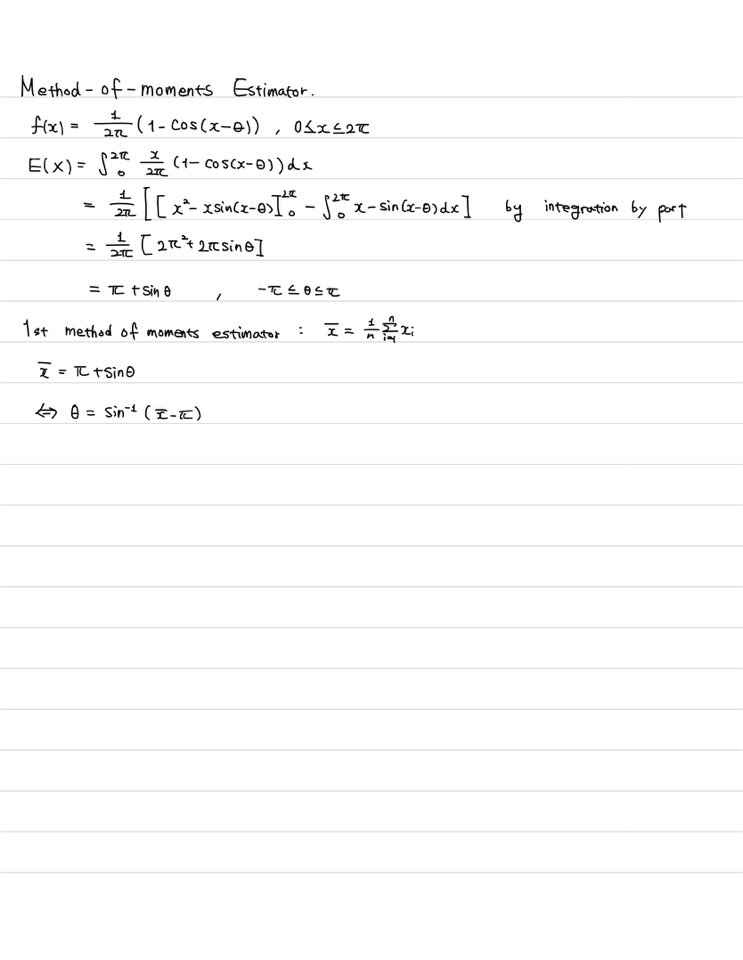 Method-of-moments Estimator.
f(x) = 1/2π (1 - cos(x-θ)) , 0≤x≤2π
E(X) = ∫₀^2π x/2π (1 - cos(x-θ)) dx
= 1/2π [ [ x² - x sin(x-θ) ]₀^2π - ∫₀^2π x - sin(x-θ) dx ] by integration by part
= 1/2π [ 2π² + 2π sinθ ]
= π + sinθ , -π ≤ θ ≤ π
1st method of moments estimator : x̄ = 1/n Σᵢ₌₁ⁿ xᵢ
x̄ = π + sinθ
⇔ θ = sin⁻¹ (x̄ - π)